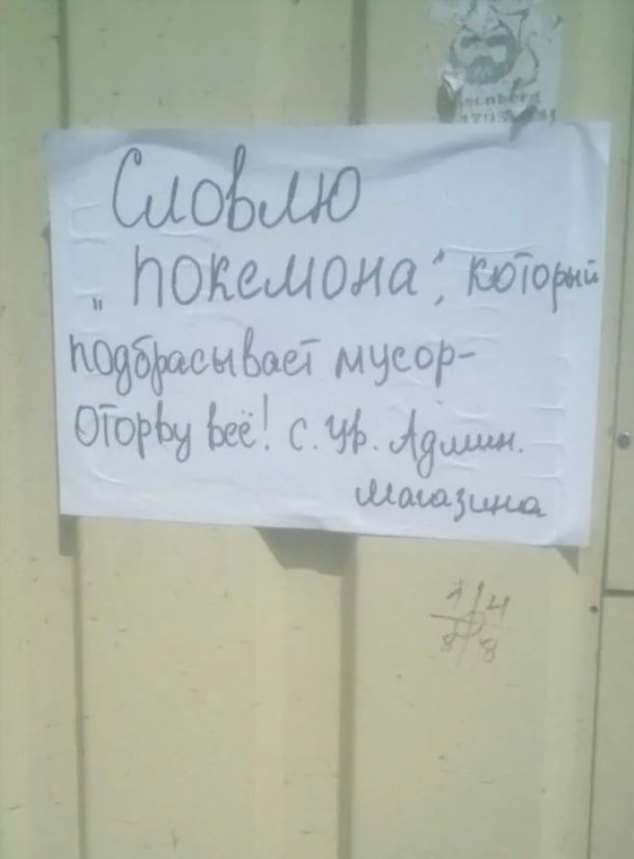 Словлю
„покемона", который
подбрасывает мусор-
Оторву всё! С. Ур. Админ.
магазина